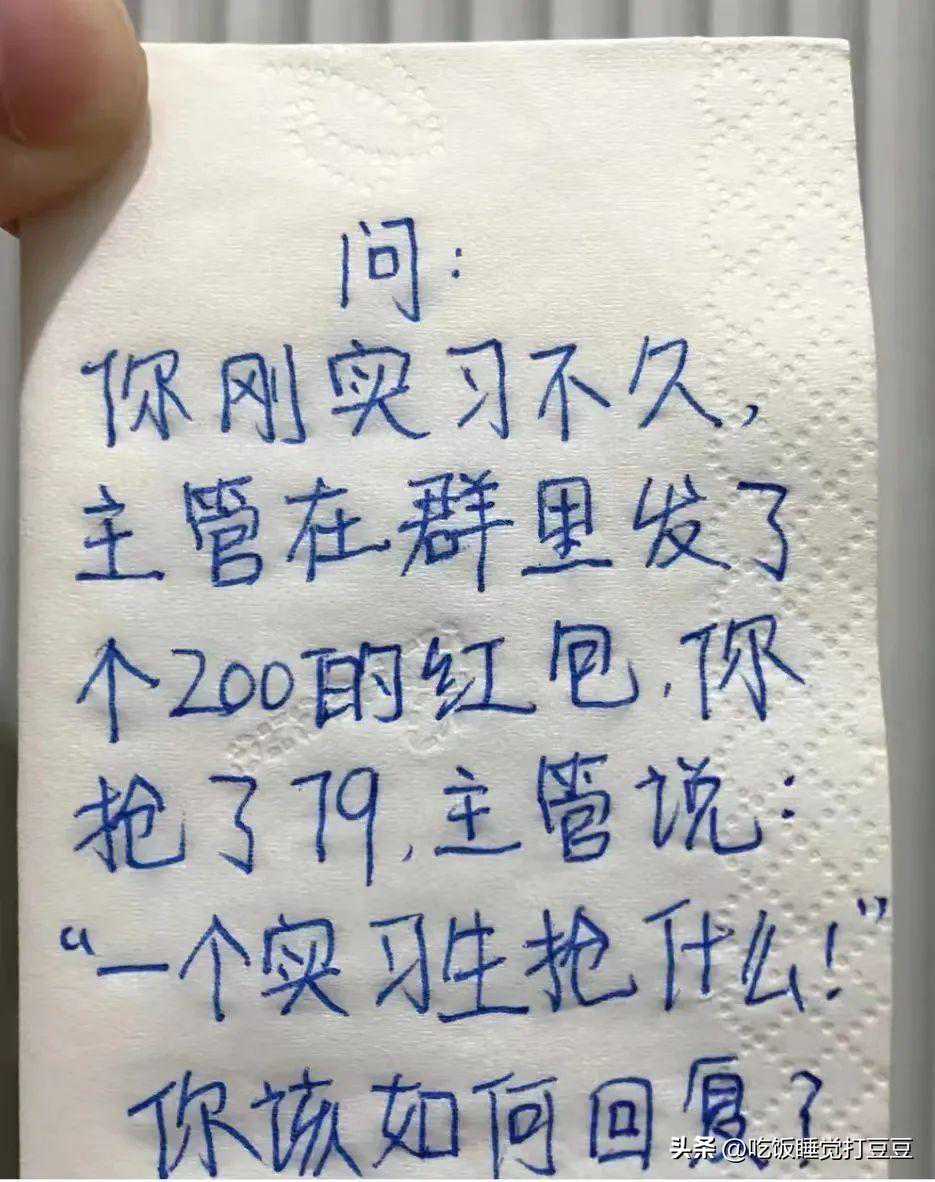 问：
你刚实习不久，
主管在群里发了
个200的红包，你
抢了79，主管说：
“一个实习生抢什么！”
你该如何回复？
头条 @吃饭睡觉打豆豆